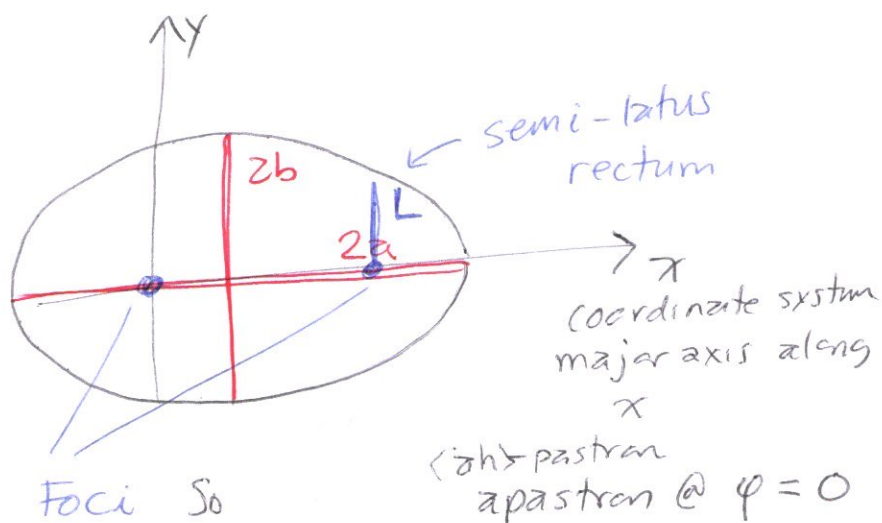 y
semi-latus
rectum
2b
L
2a
x
coordinate system
major axis along
x
<ah>-pastron
apastron @ φ = 0
Foci So